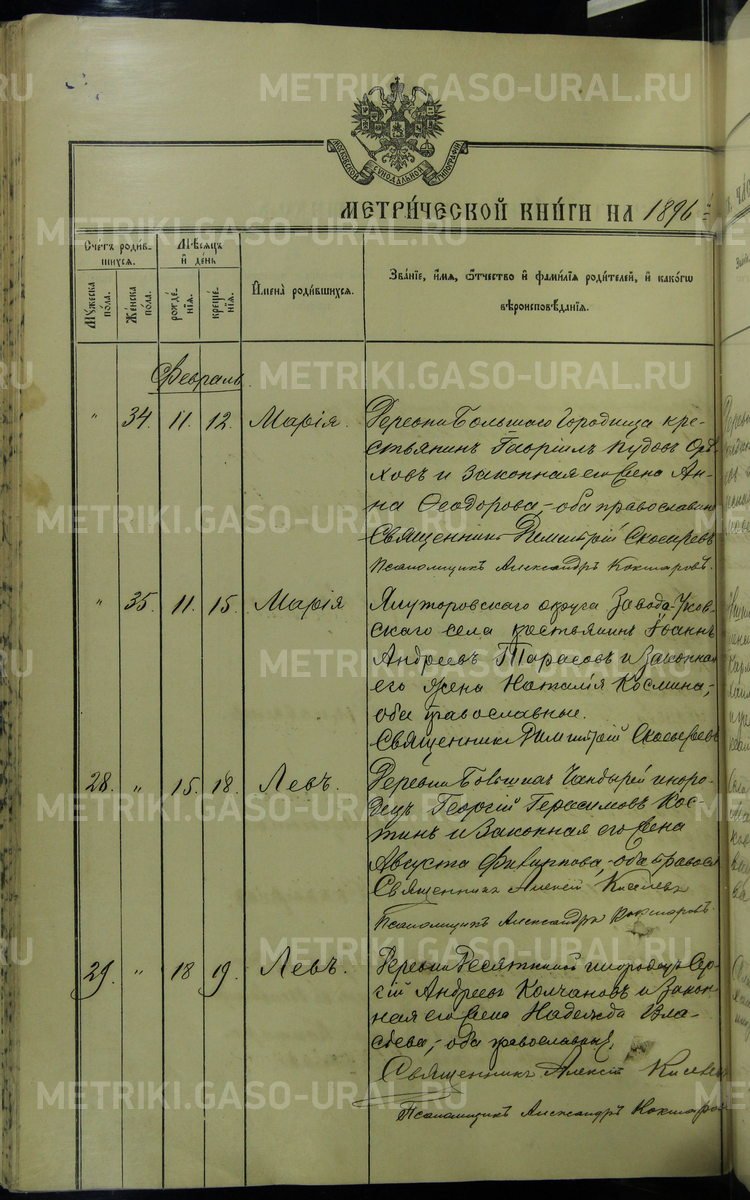 METRIKI.GASO-URAL.RU
МОСКОВСКОЙ СѴНОДАЛЬНОЙ ТИПОГРАФІИ
МЕТРИЧЕСКОЙ КНИГИ НА 1896
Счетъ родив-
шихся.
Мѣсяцъ
и день
Мужеска
пола.
Женска
пола.
рожде-
нія.
креще-
нія.
Имена родившихся.
Званіе, имя, отчество и фамилія родителей, и какогѡ
вѣроисповѣданія.
Февраль.
" 34. 11. 12. Марія.
Деревни Большаго Городища кре-
стьянинъ Гавріилъ Орѣ-
ховъ и законная его жена Ан-
на Ѳеодорова, оба православн
Священникъ Димитрій
Псаломщикъ Александръ Кокшаровъ.
" 35. 11. 15. Марія
Ялуторовскаго округа Завода-Уков-
скаго села крестьянинъ Іоаннъ
Андреевъ Тарасовъ и законная
его жена Наталія Космина,
оба православные.
Священникъ Димитрій
28. " 15. 18. Левъ.
Деревни иноро-
децъ Георгій Герасимовъ Кос-
тинъ и законная его жена
Августа Филиппова, оба правосл
Священникъ Алексій Киселевъ
Псаломщикъ Александръ Кокшаровъ.
29. " 18 19. Левъ.
Деревни инородецъ Сер-
гій Андреевъ Колчановъ и закон-
ная его жена Надежда Вла-
сьева, оба православны.
Священникъ Алексій Киселевъ
Псаломщикъ Александръ Кокшаров